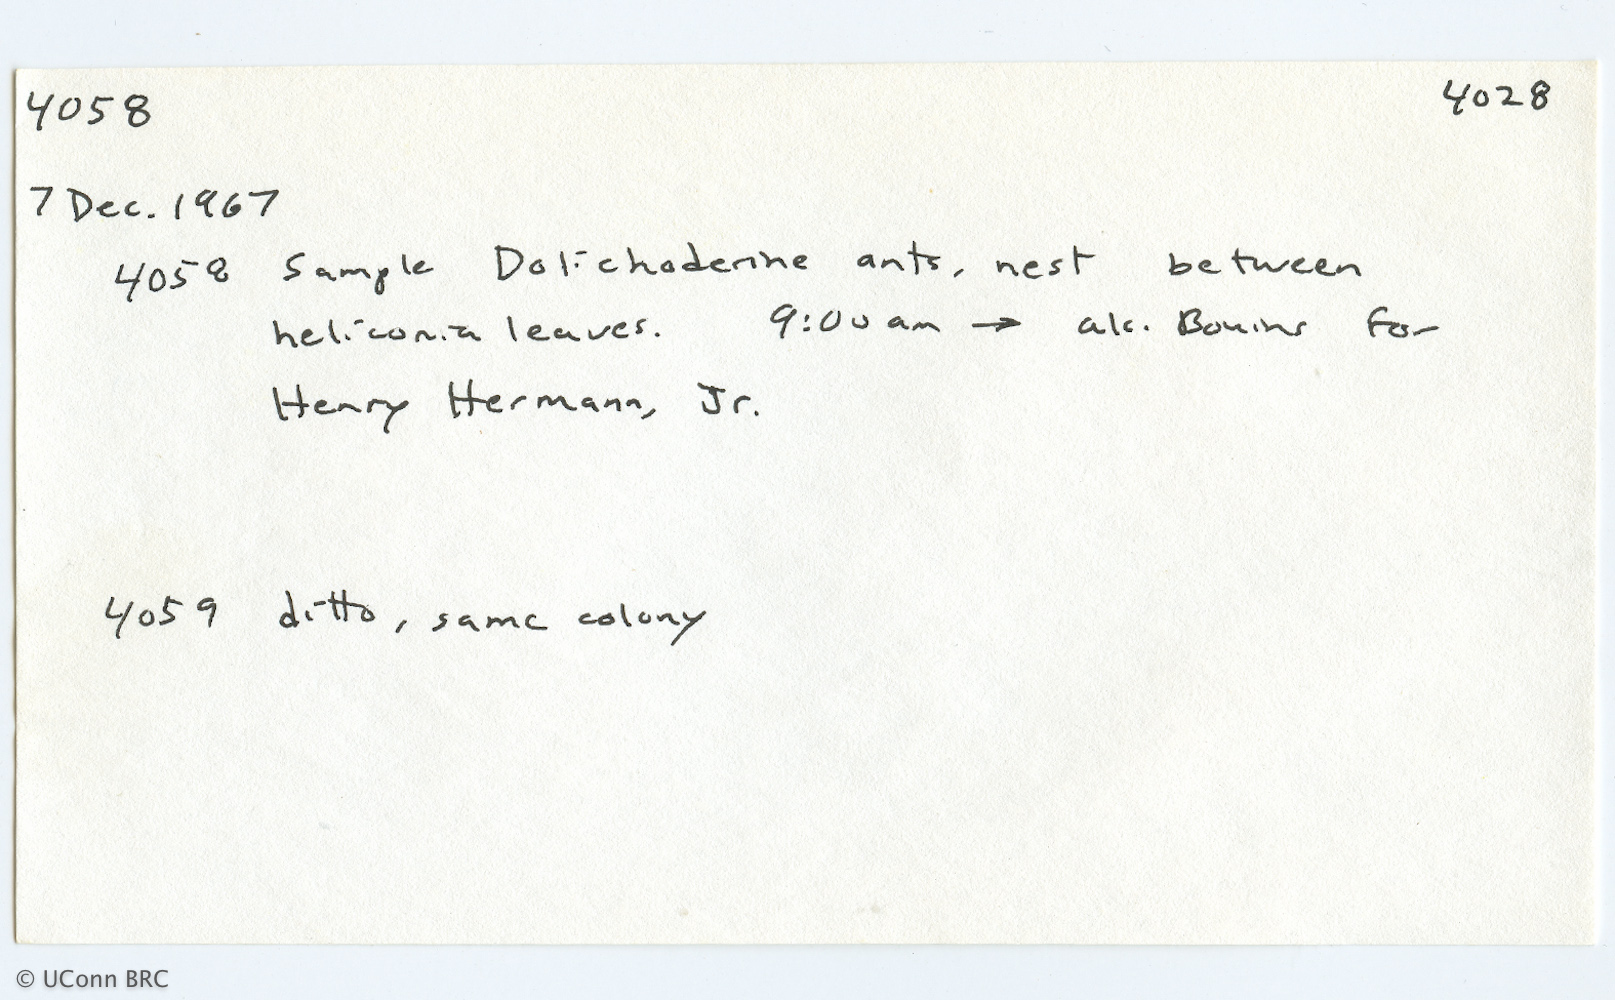 4058 4028
7 Dec. 1967
4058 Sample Dolichoderine ants, nest between
heliconia leaves. 9:00 am → alc. Bouins for
Henry Hermann, Jr.
4059 ditto, same colony
© UConn BRC